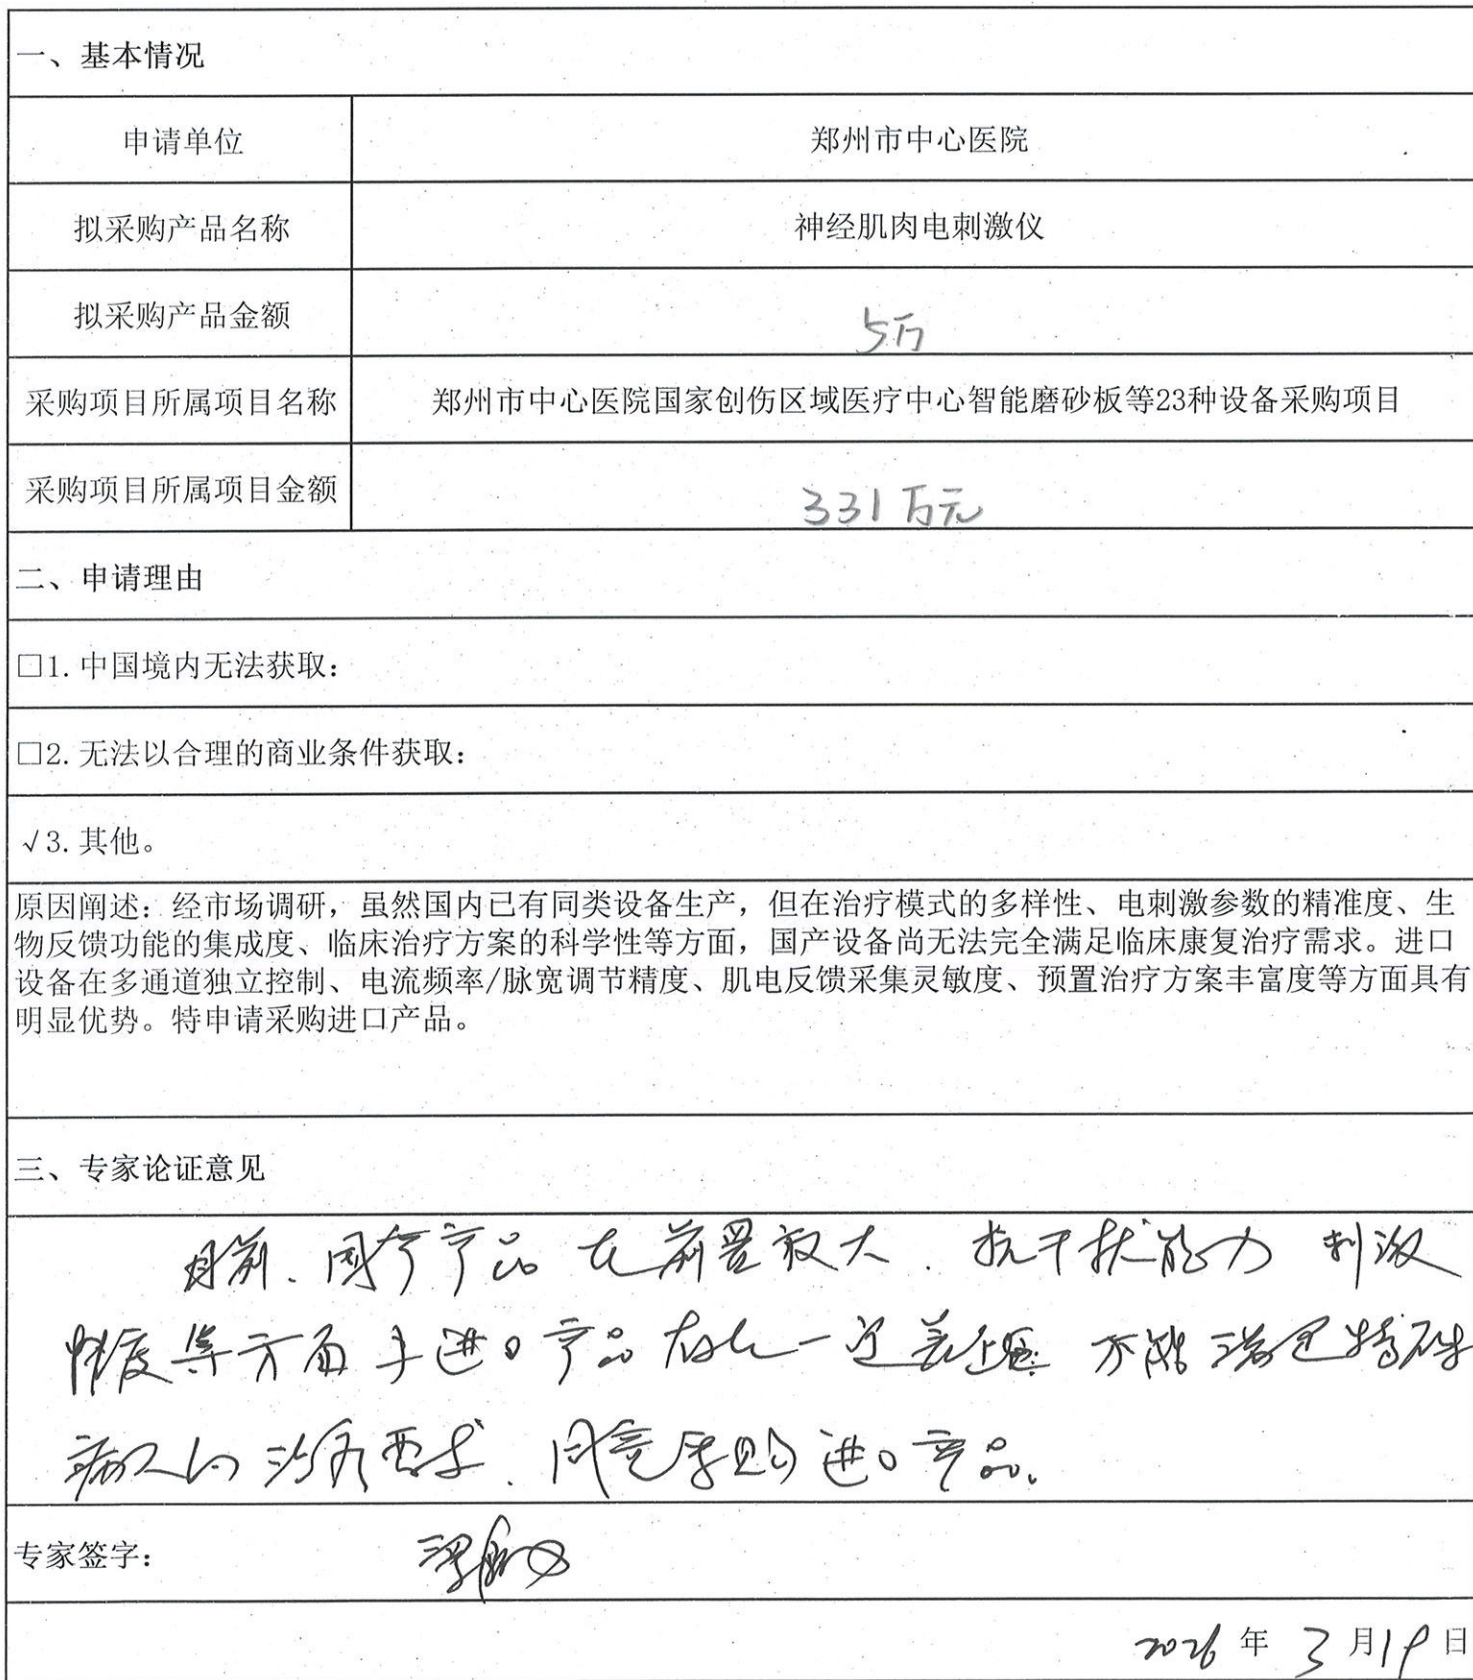 一、基本情况
申请单位 郑州市中心医院
拟采购产品名称 神经肌肉电刺激仪
拟采购产品金额 5万
采购项目所属项目名称 郑州市中心医院国家创伤区域医疗中心智能磨砂板等23种设备采购项目
采购项目所属项目金额 331万元
二、申请理由
□1.中国境内无法获取：
□2.无法以合理的商业条件获取：
√3.其他。
原因阐述：经市场调研，虽然国内已有同类设备生产，但在治疗模式的多样性、电刺激参数的精准度、生
物反馈功能的集成度、临床治疗方案的科学性等方面，国产设备尚无法完全满足临床康复治疗需求。进口
设备在多通道独立控制、电流频率/脉宽调节精度、肌电反馈采集灵敏度、预置治疗方案丰富度等方面具有
明显优势。特申请采购进口产品。
三、专家论证意见
目前、国产产品在前置放大、抗干扰能力 刺激
精度等方面与进口产品存在一定差距 不能满足特殊
病人的治疗要求、同意采购进口产品。
专家签字：
2026年3月19日